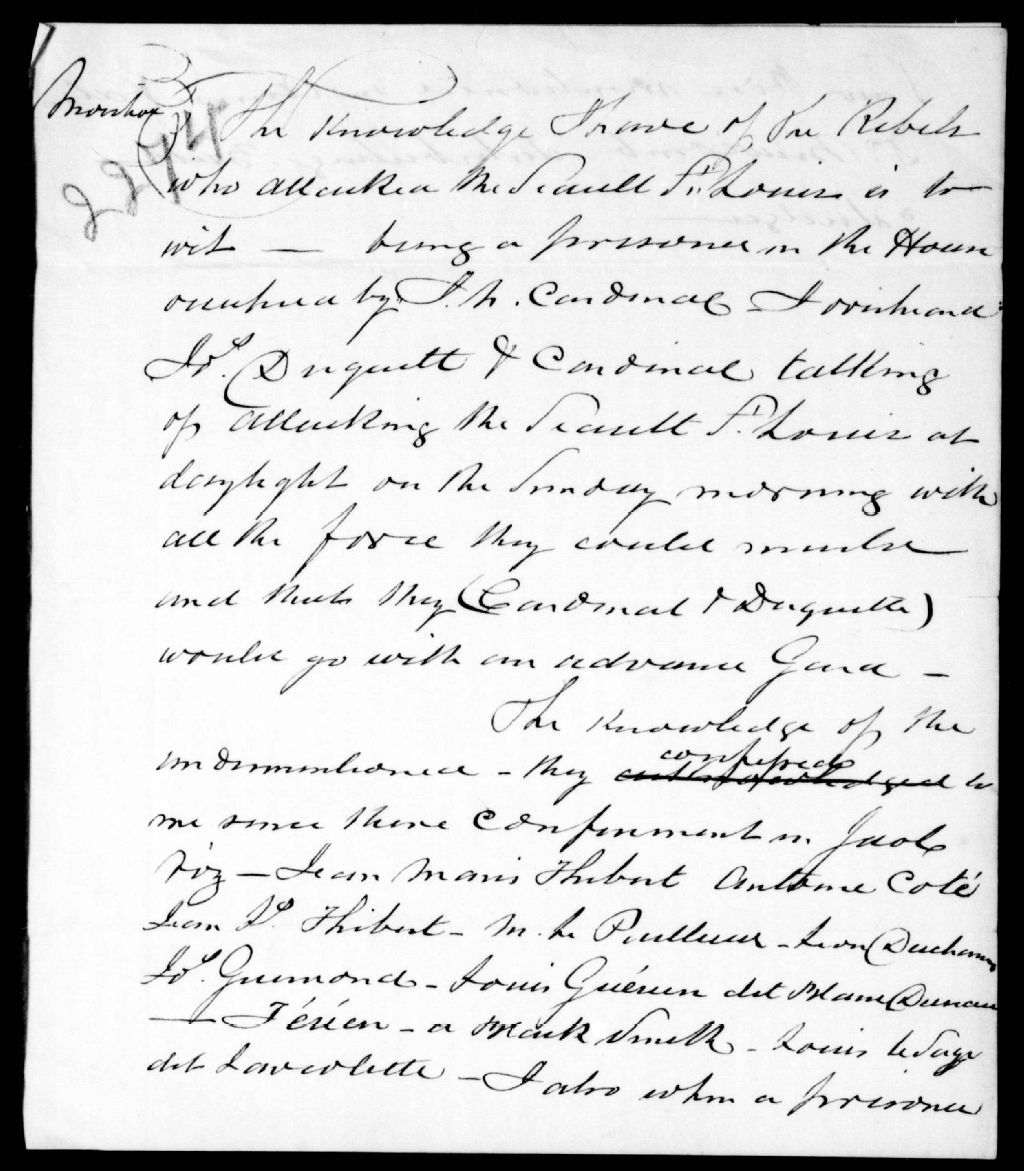 2242
The Knowledge I have of the Rebels
who attacked the Seault St Louis is to
wit — being a prisoner in the House
occupied by J. N. Cardinal I overheard
Jos. Duquett & Cardinal talking
of attacking the Seault St. Louis at
daylight on the Sunday morning with
all the force they could muster
and that they (Cardinal & Duquette)
would go with an advance Gard —
The Knowledge of the
undermentioned - they confessed to
me since there confinment in Jaol
viz — Jean Marie Thibert Antoine Coté
Jean Ls Thibert - M. Le Pailleur - Leon Ducharme
Jos. Guimond - Louis Guérien dit Blanc Dusau
— Térien - a Black Smith - Louis Lesage
dit Laviolette — I also when a prisoner